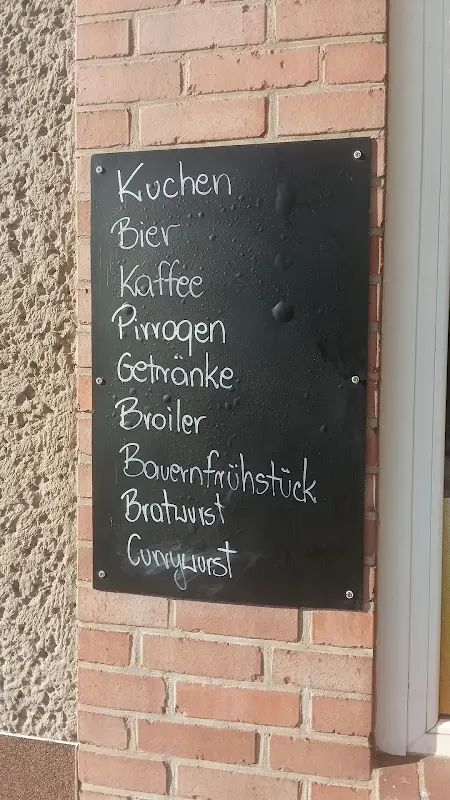 Kuchen
Bier
Kaffee
Pirrogen
Getränke
Broiler
Bauernfrühstück
Bratwurst
Currywurst